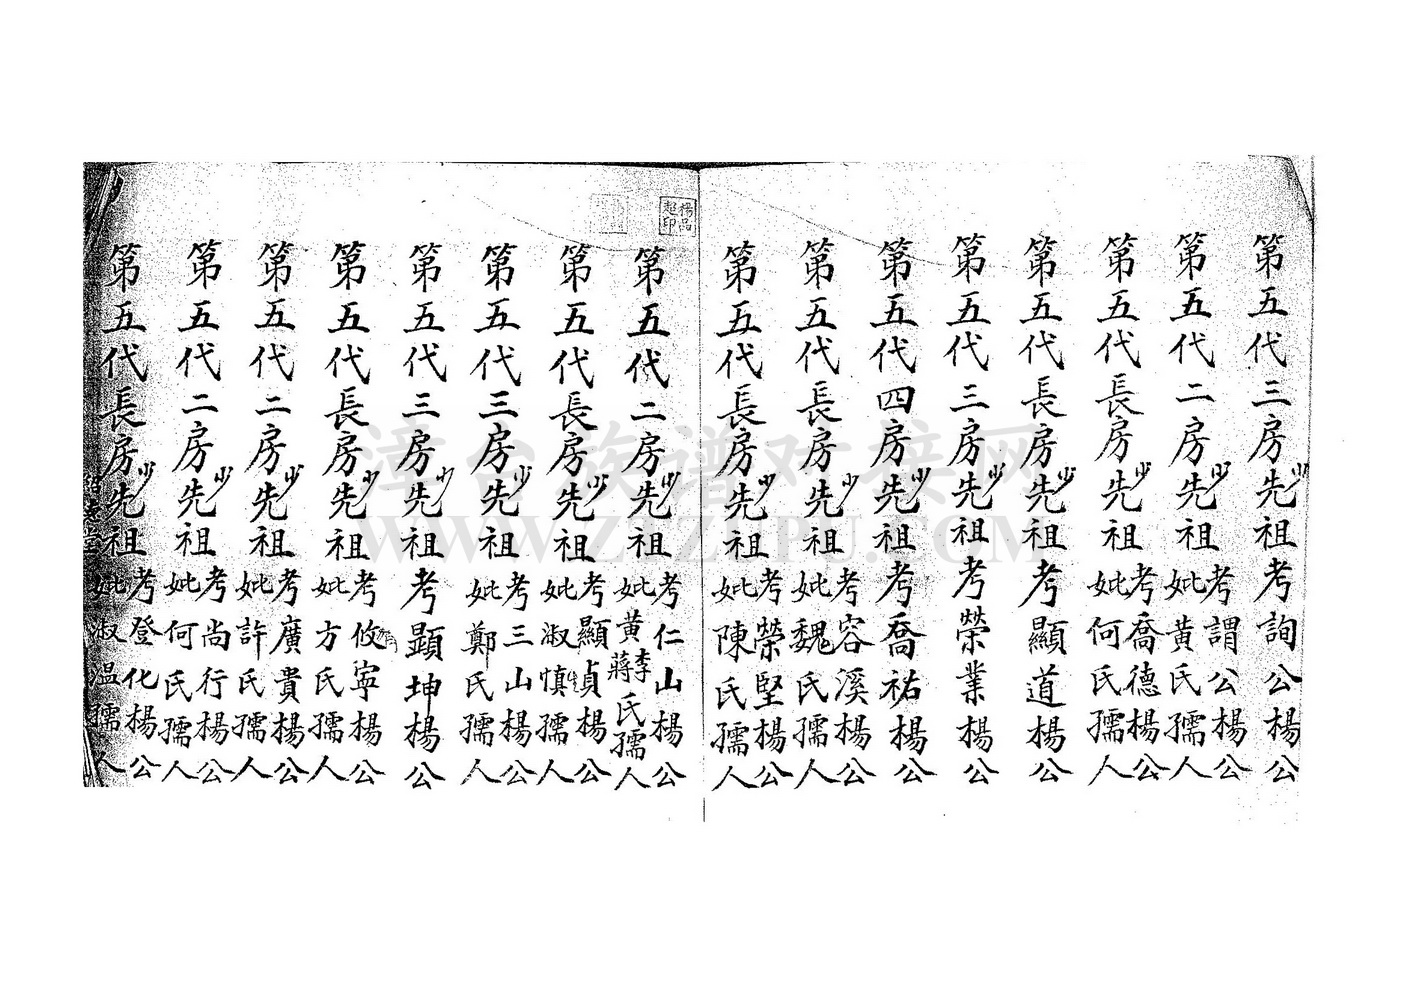 第五代三房先祖考詢公楊公
第五代二房先祖考謂公楊公
妣黄氏孺人
第五代長房先祖考喬德楊公
妣何氏孺人
第五代長房先祖考顯道楊公
第五代三房先祖考榮業楊公
第五代四房先祖考喬祐楊公
第五代長房先祖考容溪楊公
妣魏氏孺人
第五代長房先祖考榮堅楊公
妣陳氏孺人
楊品超印
第五代二房先祖考仁山楊公
妣黄李蔣氏孺人
第五代長房先祖考顯貞楊公
妣淑慎孺人
第五代三房先祖考三山楊公
妣鄭氏孺人
第五代三房先祖考顕坤楊公
第五代長房先祖考攸寧楊公
妣方氏孺人
第五代二房先祖考廣貴楊公
妣許氏孺人
第五代二房先祖考尚行楊公
妣何氏孺人
第五代長房先祖考登化楊公
妣淑温孺人
漳台族谱对接网
WWW.ZTZUPU.COM